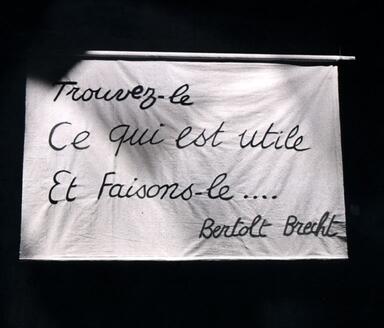 Trouvez-le
Ce qui est utile
Et Faisons-le....
Bertolt Brecht